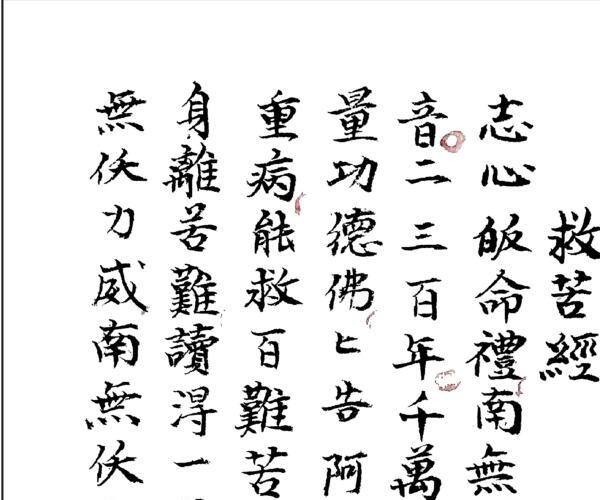 救苦經
志心皈命禮南無
音二三百年千萬
量功德佛〻告阿
重病能救百難苦
身離苦難讀得一
無仸力威南無仸